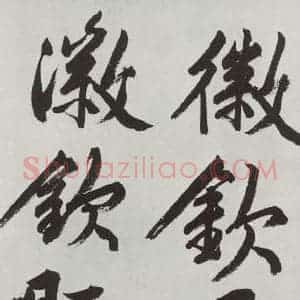 徽欽
徽欽
Shufaziliao.COM